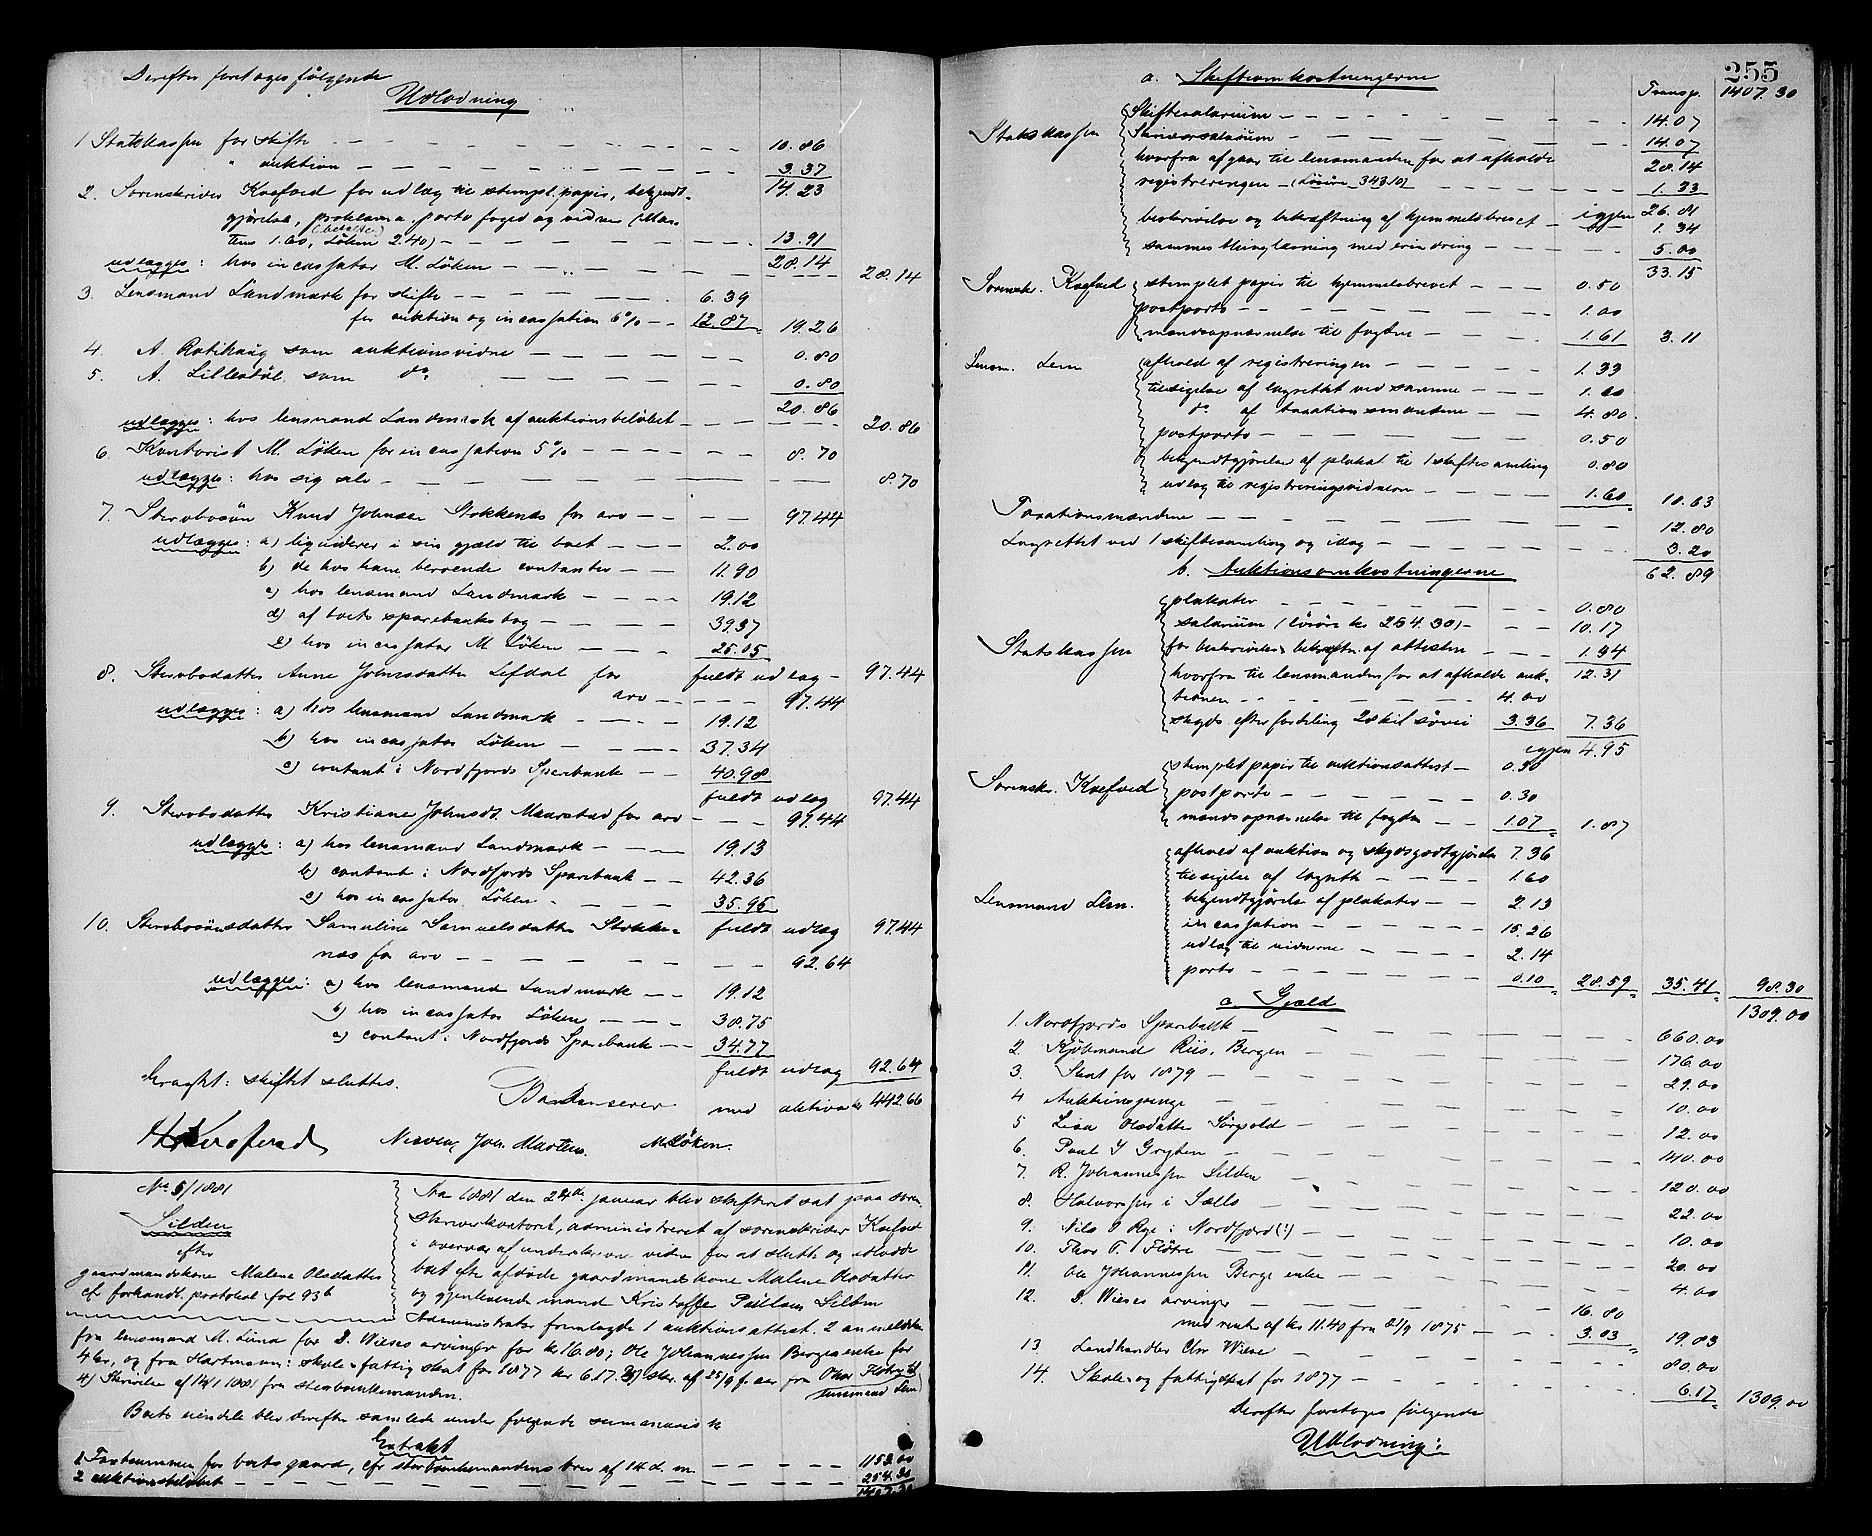 Derefter foretages følgende
Udlodning
1 Statskassen for skifte — — — 10.86
" auktion — — — 3.37
14.23
2. Sorenskriver Koefoed for udlæg til stempl. papir, bekjendt-
gjørelse, proklama, porto foged og vidner (Mar-
tens 1.60, (betalte) Løken 2.40) — — — 13.91
udlægges: hos incassator M. Løken — — — 28.14 28.14
3. Lensmand Landmark for skifte — — — 6.39
for auktion og incassation 6% — — 12.87 19.26
4. A. Rotihaug som auktionsvidne — — — 0.80
5. A. Lillestøl som do — — — 0.80
20.86
udlægges: hos lensmand Landmark af auktionsbeløbet — — — 20.86
6. Kontorist M. Løken for incassation 5% — — — 8.70
udlægges: hos sig selv — — — 8.70
7. Sterbosøn Knud Johnsen Stokkenes for arv — — — 97.44
udlægges: a) liquiderer i sin gjæld til boet — — — 2.00
b) de hos ham beroende contanter — — 11.90
c) hos lensmand Landmark — — — 19.12
d) af boets sparebanksbog — — — 39.37
e) hos incassator M Løken — — — 25.05
fuldt udlæg — 97.44
8. Sterbodatter Anne Johnsdatter Lefdal for
arv — — — 97.44
udlægges: a) hos lensmand Landmark — — — 19.12
b) hos incassator Løken — — — 37.34
c) contant i Nordfjords Sparebank — — 40.98
fuldt udlæg 97.44
9. Sterbodatter Kristiane Johnsdt. Maurstad for arv — — — 97.44
udlægges: a) hos lensmand Landmark — — — 19.13
b) contant i Nordfjords Sparebank — — 42.36
c) hos incassator Løken — — — 35.95
fuldt udlæg 97.44
10. Sterbosønsdatter Samuline Samuelsdatter Stokke-
nes for arv — — — 92.64
udlægges: a) hos lensmand Landmark — — 19.12
b) hos incassator Løken — — — 38.75
c) contant i Nordfjords Sparebank — — 34.77
fuldt udlæg 92.64
Eragtet: skiftet sluttes.
med aktiva kr 442.66
Koefoed Joh. Martens. MLøken.
No 5/1881
Silden
efter
gaardmandskone Malene Olsdatter
cf forhandl. protokol fol 93b
Aar 1881 den 24de januar blev skifteret sat paa soren-
skriverkontoret, administreret af sorenskriver Koefoed
i overvær af underskrevne vidner for at slutte og udlodde
boet efter afdøde gaardmandskone Malene Olsdatter
og gjenlevende mand Kristoffer Paulsen Silden
Administrator fremlagde 1 auktionsattest. 2 anmeldelser
fra lensmand M. Lund for D. Wieses arvinger for kr 16.80; Ole Johannessen Bergs enke for
4 kr, og fra Hartmann: skole & fattigskat for 1877 kr 6.17. 3) skr. af 25/9 f. aar fra Thor Fløtre til
lensmand Lem
4) Skrivelse af 14/1 1881 fra sterboenkemanden.
Boets eiendele blev derefter samlede under følgende summariske
Extrakt
1 Taxtsummen for boets gaard, cfr sterboenkemandens brev af 14 d. m. — — — 1153.00
2 auktionsbeløbet — — — 254.30
1407.30
255
Transp. 1407.30
a. Skifteomkostningerne
Statskassen
Skiftesalarium — — — 14.07
Skriversalarium — — — 14.07
28.14
hvorfra afgaar til lensmanden for at afholde
registreringen — (Løsøre 343.10) — — — 1.33
igjen 26.81
beskrivelse og bekræftning af hjemmelsbrevet — — 1.34
sammes thinglæsning med erindring — — — 5.00
33.15
Sorenskr. Koefoed
stemplet papir til hjemmelsbrevet — — — 0.50
postporto — — — 1.00
mandsopnævnelse til fogden — — — 1.61 3.11
Lensm. Lem
afhold af registreringen — — — 1.33
tilsigelse af lagrettet ved samme — — 1.60
do af taxationsmændene — — 4.80
postporto — — — 0.50
bekjendtgjørelse af plakat til 1 skiftesamling 0.80
udlæg til registreringsvidnerne — — — 1.60 10.63
Taxationsmændene — — — 12.80
Lagrettet ved 1 skiftesamling og idag — — — 3.20
62.89
b. Auktionsomkostningerne
Statskassen
plakater — — — 0.80
salarium (løsøre kr 254.30) — — — 10.17
for beskrivelse & bekræftn. af attesten — — — 1.34
12.31
hvorfra til lensmanden for at afholde auk-
tionen — — — 4.00
skyds efter fordeling 28 kil søvei 3.36 7.36
igjen 4.95
Sorenskr. Koefoed
stemplet papir til auktionsattest — 0.50
postporto — — — 0.30
mandsopnævnelse til fogden — — 1.07 1.87
Lensmand Lem.
afhold af auktion og skydsgodtgjørelse 7.36
tilsigelse af lagrette — — — 1.60
bekjendtgjørelse af plakater — — 2.13
incassation — — — 15.26
udlæg til vidnerne — — — 2.14
porto — — — 0.10 28.59 35.41 98.30
1309.00
c. Gjæld
1. Nordfjords Sparebank — — — 660.00
2. Kjøbmand Riis, Bergen — — — 176.00
3. Skat for 1879 — — — 29.00
4 Auktionspenge — — — 10.00
5 Lisa Olsdatter Sørpold — — — 12.00
6. Paul J Gryten — — — 140.00
7. R. Johannessen Silden — — — 120.00
8. Halvorssen i Sælls — — — 22.00
9. Nils O Rye i Nordfjord (:) — — — 10.00
10. Thor T. Fløtre — — — 20.00
11. Ole Johannessen Bergs enke — — — 4.00
12. D. Wieses arvinger — — — 16.80
med renter af kr 11.40 fra 21/9 1875 — — 3.03 19.83
13. Landhandler Chr Wiese — — — 80.00
14. Skole- og fattigskat for 1877 — — — 6.17 1309.00
Derefter foretages følgende
Udlodning: